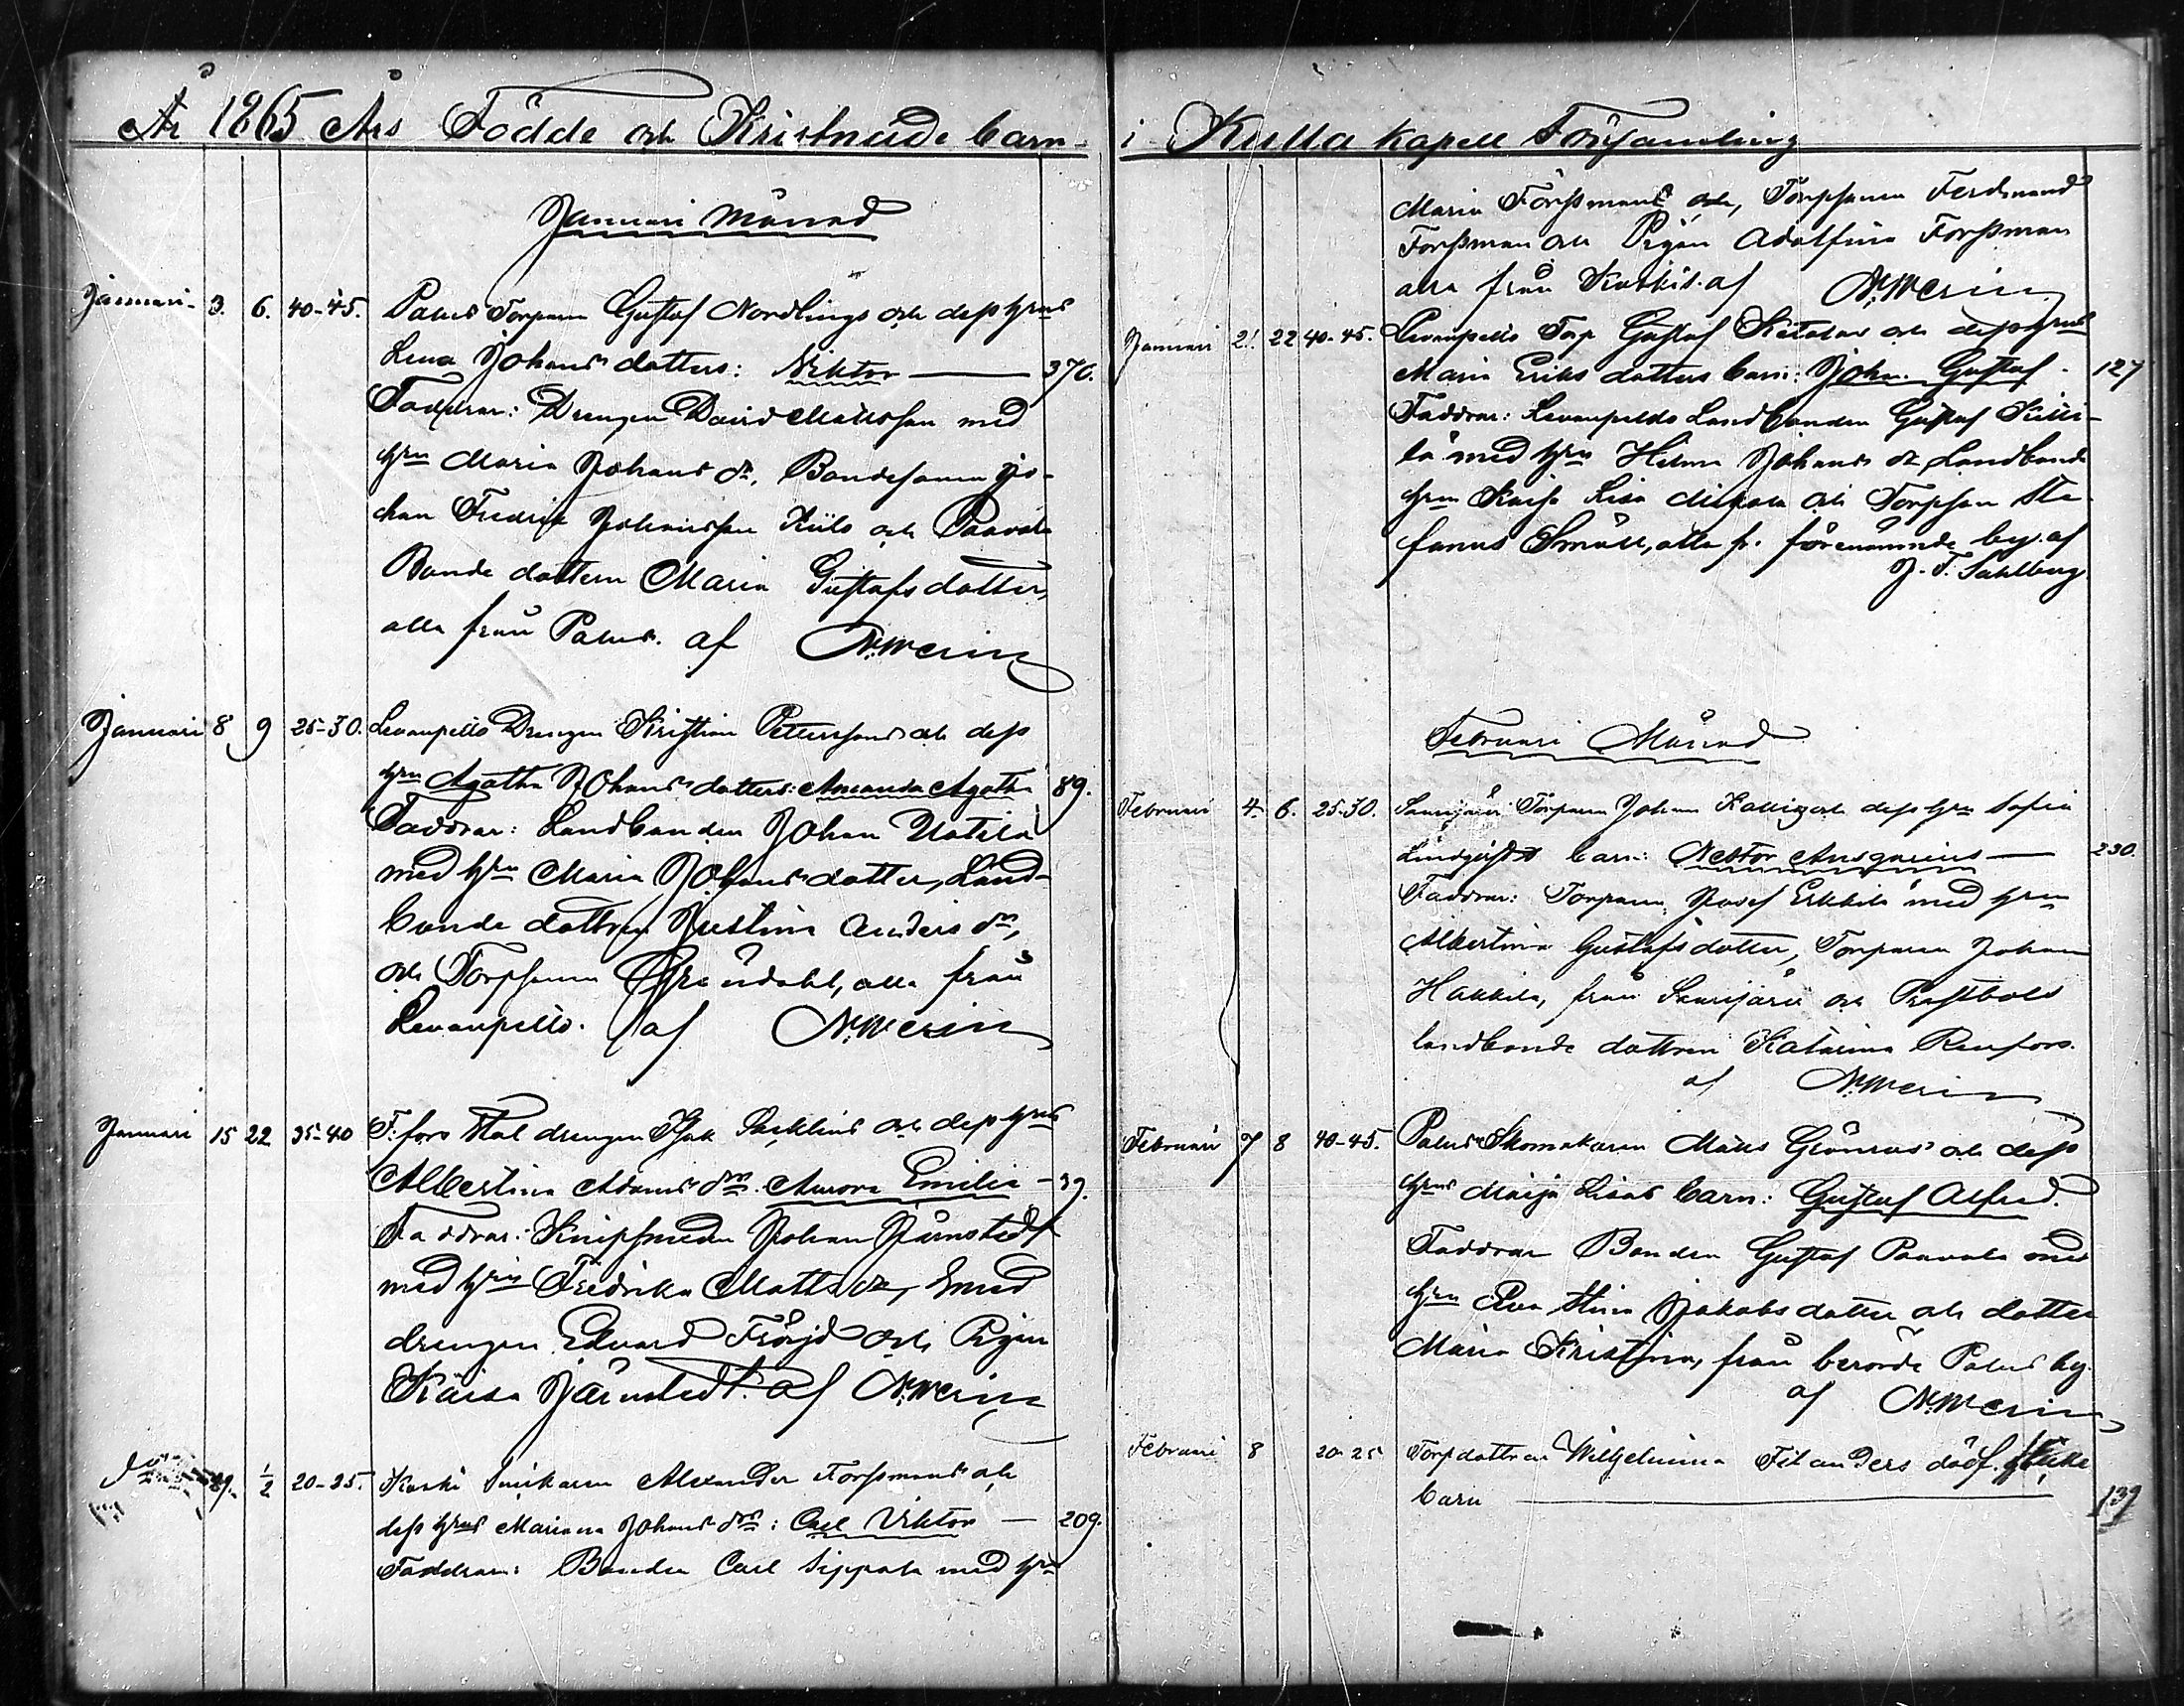 År 1865 Års Födde och Kristnade barn
Januari Månad
Januari 3. 6. 40-45. Palus Torparen Gustaf Nordlings och dess hrus
Lena Johans dotters: Viktor — 370.
Faddrar: Drengen David Mattsson med
hru Maria Johans dr, Bondesonen Jo-
han Fredrik Johansson Kulo och Paavola
Bonde dottern Maria Gustafs dotter,
alla från Palus. af N. Werin
Januari 8 9 25-30. Levanpelto Drengen Kristian Petterssons och dess
hru Agatha Johans dotters: Amanda Agatha 89.
Faddrar: Landbonden Johan Uotila
med hru Maria Johans dotter, Land-
bonde dottren Justina Anders dr,
och Torpsonen Gröndahl, alla från
Levanpelto. af N. Werin
Januari 15 22 35-40 F:fors Stal drengen Isak Säcklins och dess hrus
Albertina Adams drs. Aurora Emilia — 39.
Faddrar: Knipsmeden Johan Järnstedt
med hru Fredrika Matts dr, Smed
drengen Edvard Fröjd och Pigan
Kaisa Järnstedt. af N. Werin
1/2 20-25. Koski Snickaren Alexander Forssmans och
dess hrus Mariana Johans drs: Carl Viktor — 209.
Faddrar: Bonden Carl Sippola med hru
i Kulla Kapell Församling
Maria Forssmans och, Torpsonen Ferdinand
Forssman och Pigan Adolfina Forssman
alla från Koskis. af N. Werin
Januari 21. 22 40-45. Levanpelto Torp Gustaf och dess hrus
Maria Eriks dotters barn: Johan Gustaf. 127
Faddrar: Levanpelto Landbonden Gustaf Kilki-
lä med hru Helena Johans dr, Landbonde
hru Kaisa Lisa och Torpson Ste-
fanus Småll, alla fr. förenämnde by. af
J. F. Sahlberg
Februari Månad
Februari 4. 6. 25-30. Torparen Johan och dess hru Sofia
Lindqvists barn: Nestor Ansgarius — 230.
Faddrar: Torparen Josef Erkkilä med hru
Albertina Gustafs dotter, Torparen Johan
Hakkila, från och Prestbols
landbonde dottren Katarina Renfors.
af N. Werin
Februari 7 8 40-45. Palus Skomakaren Matts Grönroos och dess
hrus Maija Lisas barn: Gustaf Alfred.
Faddrar Bonden Gustaf Paavola med
hru Eva Stina Jakobs dotter och dotter
Maria Kristina, från berörde Palus by.
af N. Werin
Februari 8 20-25 Torpdottren Wilhelmina Filanders dödf. flicke
barn — 139